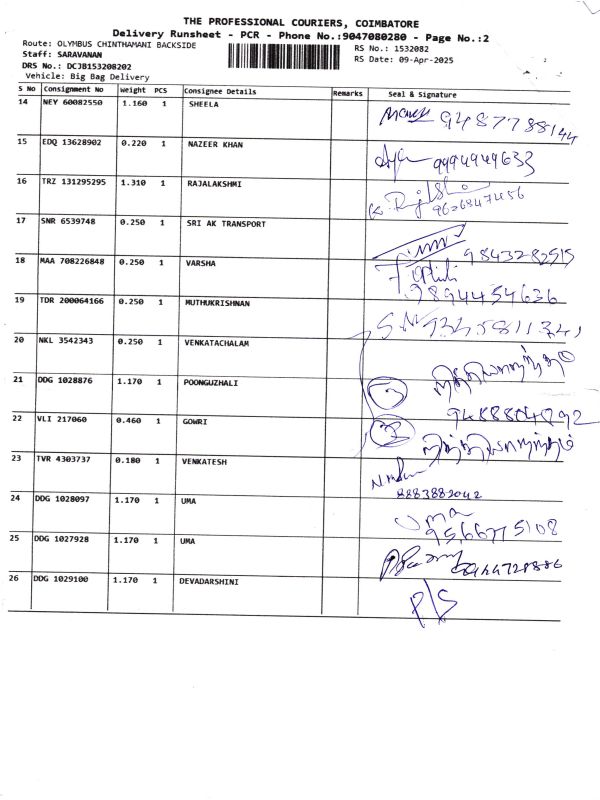 THE PROFESSIONAL COURIERS, COIMBATORE
Delivery Runsheet - PCR - Phone No.:9047080280 - Page No.:2
Route: OLYMBUS CHINTHAMANI BACKSIDE
RS No.: 1532082
Staff: SARAVANAN
RS Date: 09-Apr-2025
DRS No.: DCJB153208202
Vehicle: Big Bag Delivery
S No Consignment No Weight PCS Consignee Details Remarks Seal & Signature
14 NEY 60082550 1.160 1 SHEELA 9487788144
15 EDQ 13628902 0.220 1 NAZEER KHAN 9994949633
16 TRZ 131295295 1.310 1 RAJALAKSHMI 9626847456
17 SNR 6539748 0.250 1 SRI AK TRANSPORT 9843282515
18 MAA 708226848 0.250 1 VARSHA 9894454636
19 TDR 200064166 0.250 1 MUTHUKRISHNAN S.N
20 NKL 3542343 0.250 1 VENKATACHALAM
21 DDG 1028876 1.170 1 POONGUZHALI 9488804892
22 VLI 217060 0.460 1 GOWRI
23 TVR 4303737 0.180 1 VENKATESH 8883882042
24 DDG 1028097 1.170 1 UMA Uma 9566775108
25 DDG 1027928 1.170 1 UMA
26 DDG 1029100 1.170 1 DEVADARSHINI P/S